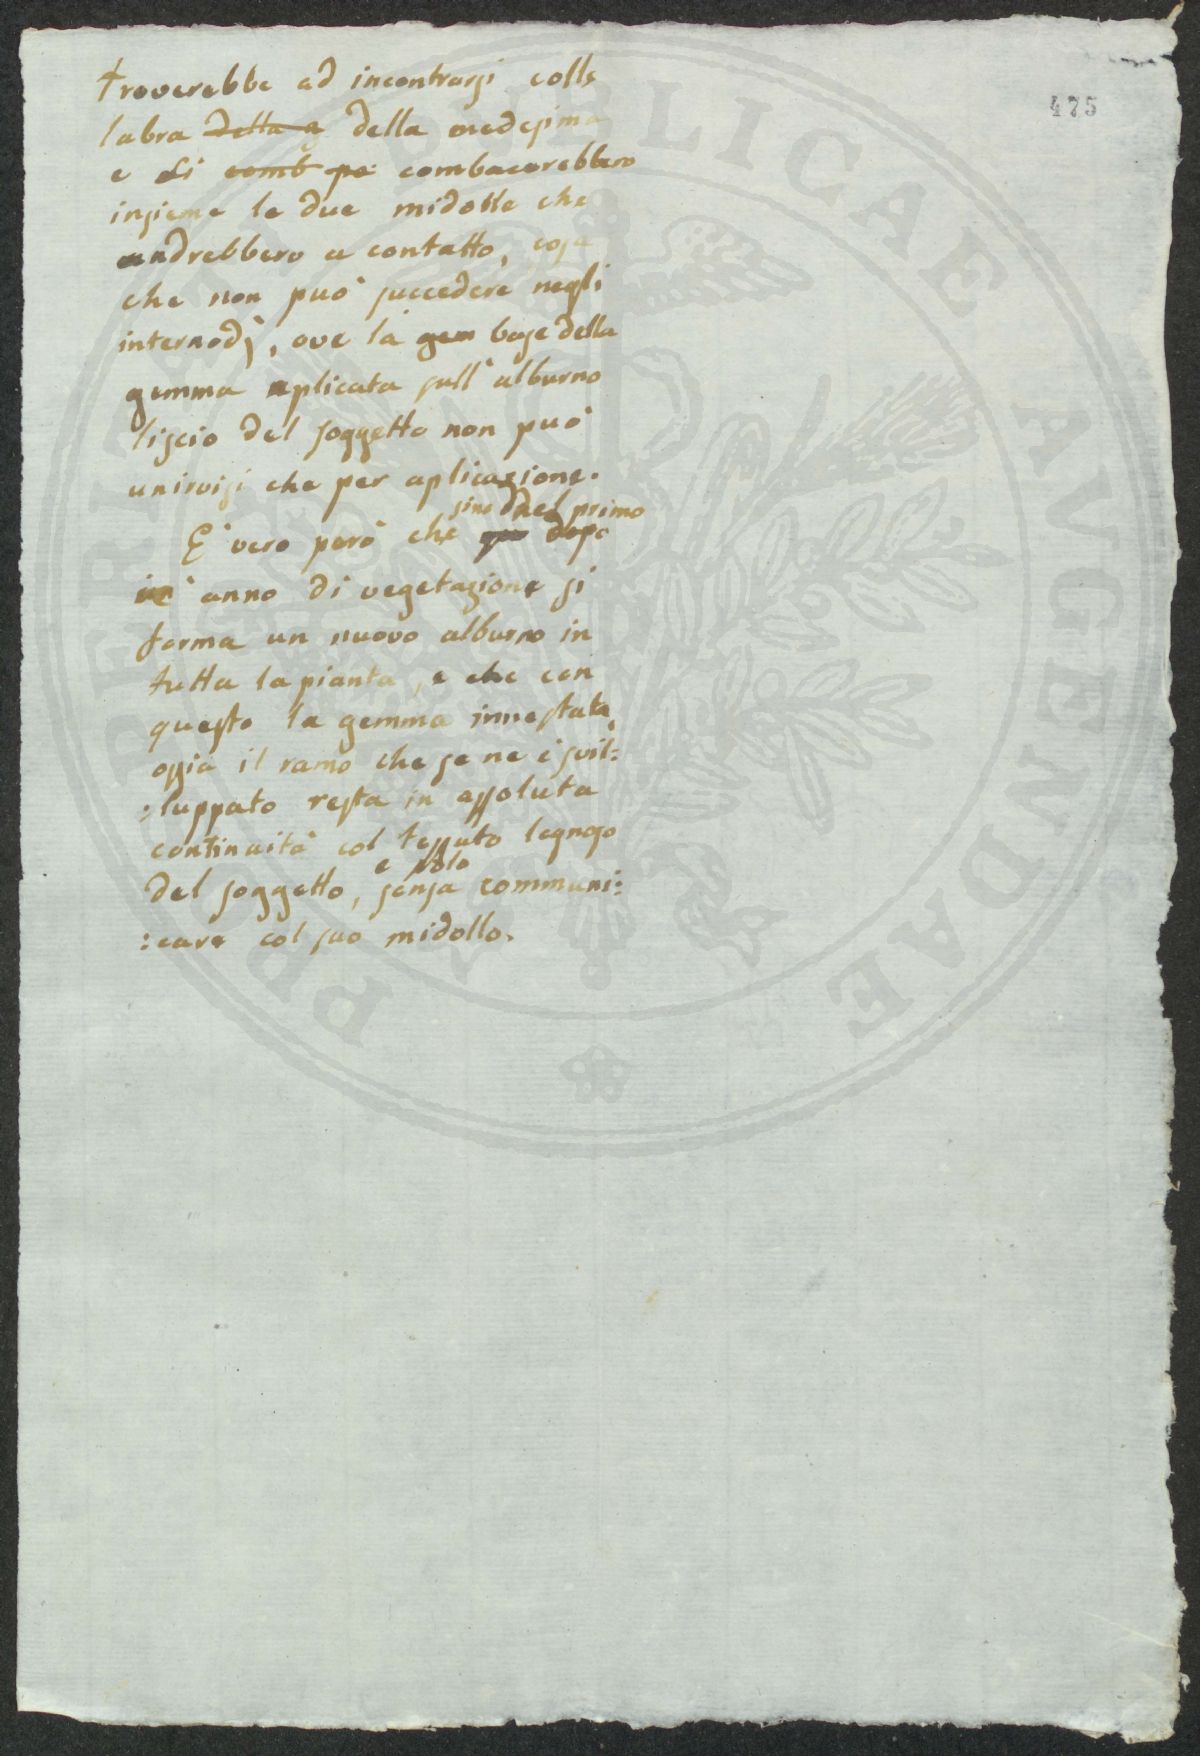 475
troverebbe ad incontrarsi colle
labra della g della medesima
e si comb pe combacerebbero
insieme le due midolle che
andrebbero a contatto, cosa
che non può succedere negli
internodj, ove la gem base della
gemma aplicata sull'alburno
liscio del soggetto non può
unirvisi che per aplicazione.
sino dnel primo
E' vero però che dopo
un' anno di vegetazione si
forma un nuovo alburno in
tutta la pianta, e che con
questo la gemma innestata,
ossia il ramo che se ne è svil=
:luppato resta in assoluta
continuità col tessuto legnoso
e solo
del soggetto, senza communi=
:care col suo midollo.
PUBLICAE AUGENDAE